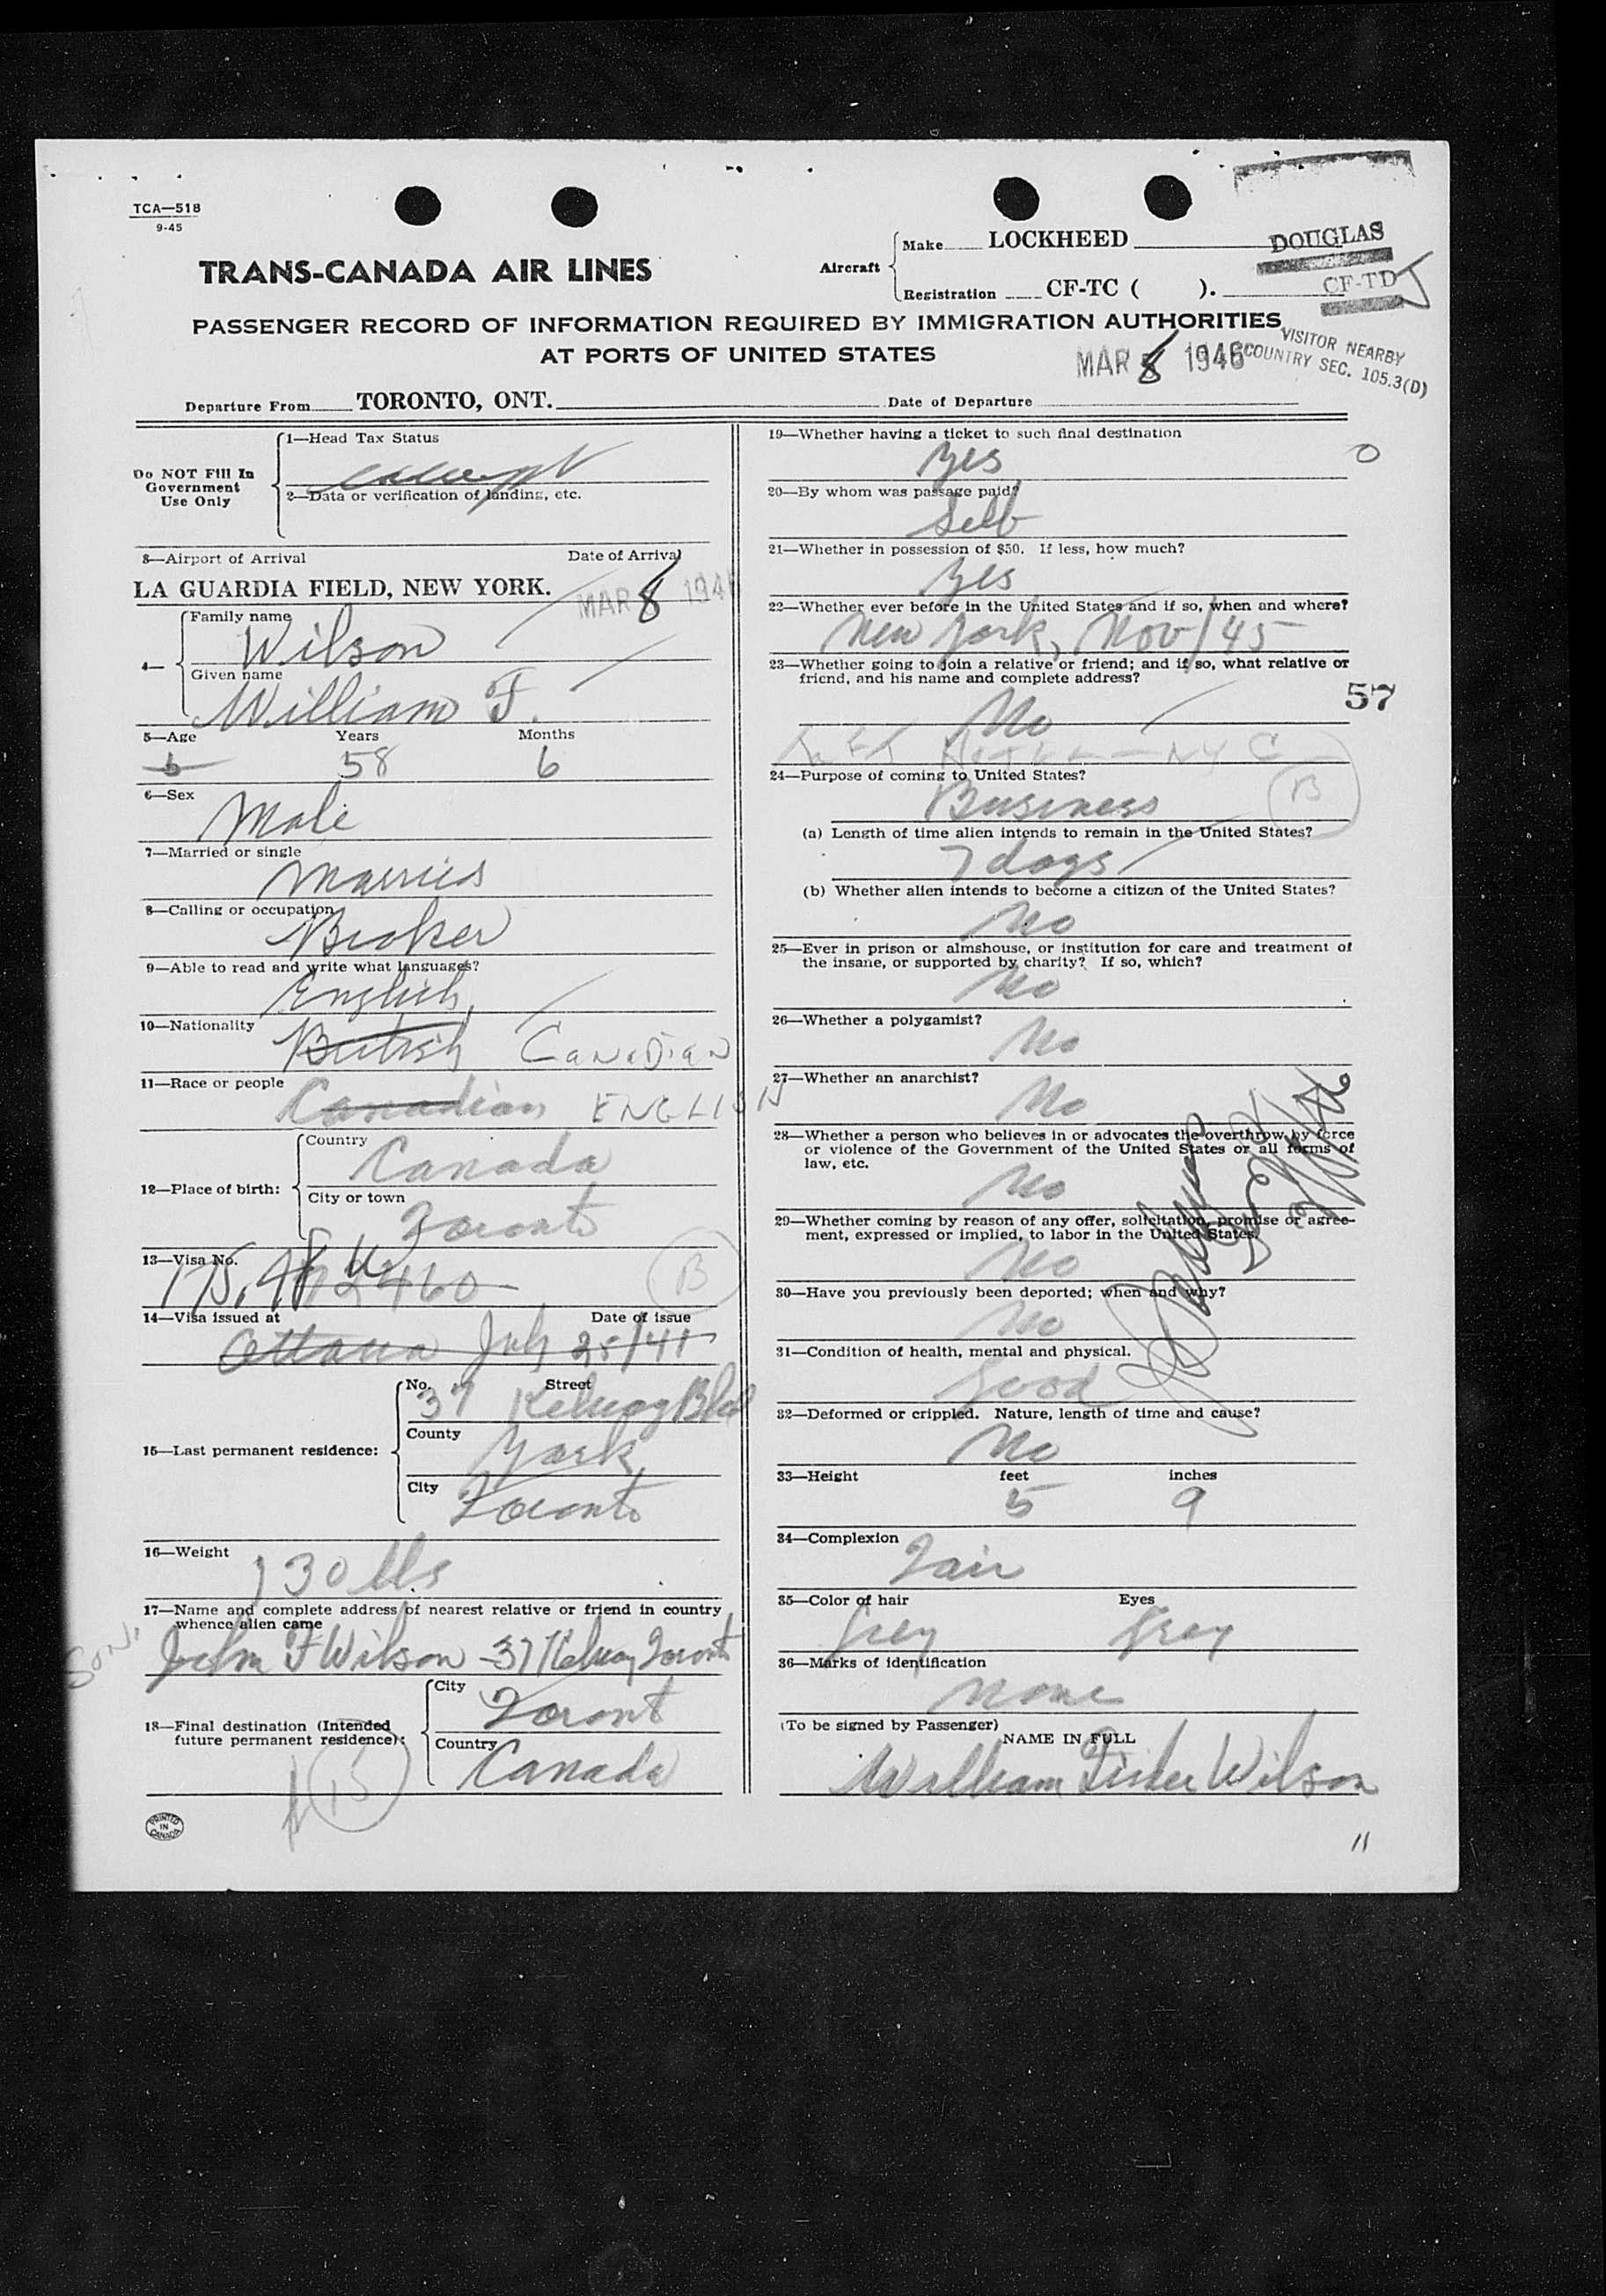 TCA—518
9-45
TRANS-CANADA AIR LINES
Aircraft
Make LOCKHEED
DOUGLAS
Registration CF-TC ( ).
CF-TD J
PASSENGER RECORD OF INFORMATION REQUIRED BY IMMIGRATION AUTHORITIES
AT PORTS OF UNITED STATES
MAR 8 1946
VISITOR NEARBY
COUNTRY SEC. 105.3(D)
Departure From TORONTO, ONT. Date of Departure
Do NOT Fill In
Government
Use Only
1—Head Tax Status
exempt
2—Data or verification of landing, etc.
3—Airport of Arrival Date of Arrival
LA GUARDIA FIELD, NEW YORK. MAR 8 194
4—
Family name
Wilson
Given name
William F.
5—Age Years Months
58 6
6—Sex
Male
7—Married or single
Married
8—Calling or occupation
Broker
9—Able to read and write what languages?
English
10—Nationality
British Canadian
11—Race or people
Canadian ENGLISH
12—Place of birth:
Country
Canada
City or town
Toronto
13—Visa No.
B
14—Visa issued at Date of issue
Ottawa July 25/41
15—Last permanent residence:
No. Street
37 Kelway Blvd
County
York
City
Toronto
16—Weight
130 lbs
17—Name and complete address of nearest relative or friend in country
whence alien came
SON.
John F Wilson - 37 Kelway Toronto
18—Final destination (Intended
future permanent residence):
City
Toront
Country
Canada
15
PRINTED
IN
CANADA
19—Whether having a ticket to such final destination
Yes
0
20—By whom was passage paid?
Self
21—Whether in possession of $50. If less, how much?
Yes
22—Whether ever before in the United States and if so, when and where?
New York, Nov/45
23—Whether going to join a relative or friend; and if so, what relative or
friend, and his name and complete address?
57
No
NYC
24—Purpose of coming to United States?
Business
B
(a) Length of time alien intends to remain in the United States?
7 days
(b) Whether alien intends to become a citizen of the United States?
No
25—Ever in prison or almshouse, or institution for care and treatment of
the insane, or supported by charity? If so, which?
No
26—Whether a polygamist?
No
27—Whether an anarchist?
No
28—Whether a person who believes in or advocates the overthrow by force
or violence of the Government of the United States or all forms of
law, etc.
No
29—Whether coming by reason of any offer, solicitation, promise or agree-
ment, expressed or implied, to labor in the United States.
No
30—Have you previously been deported; when and why?
No
31—Condition of health, mental and physical.
Good
32—Deformed or crippled. Nature, length of time and cause?
No
33—Height feet inches
5 9
34—Complexion
Fair
35—Color of hair Eyes
Grey Grey
36—Marks of identification
None
(To be signed by Passenger)
NAME IN FULL
William Fisher Wilson
11